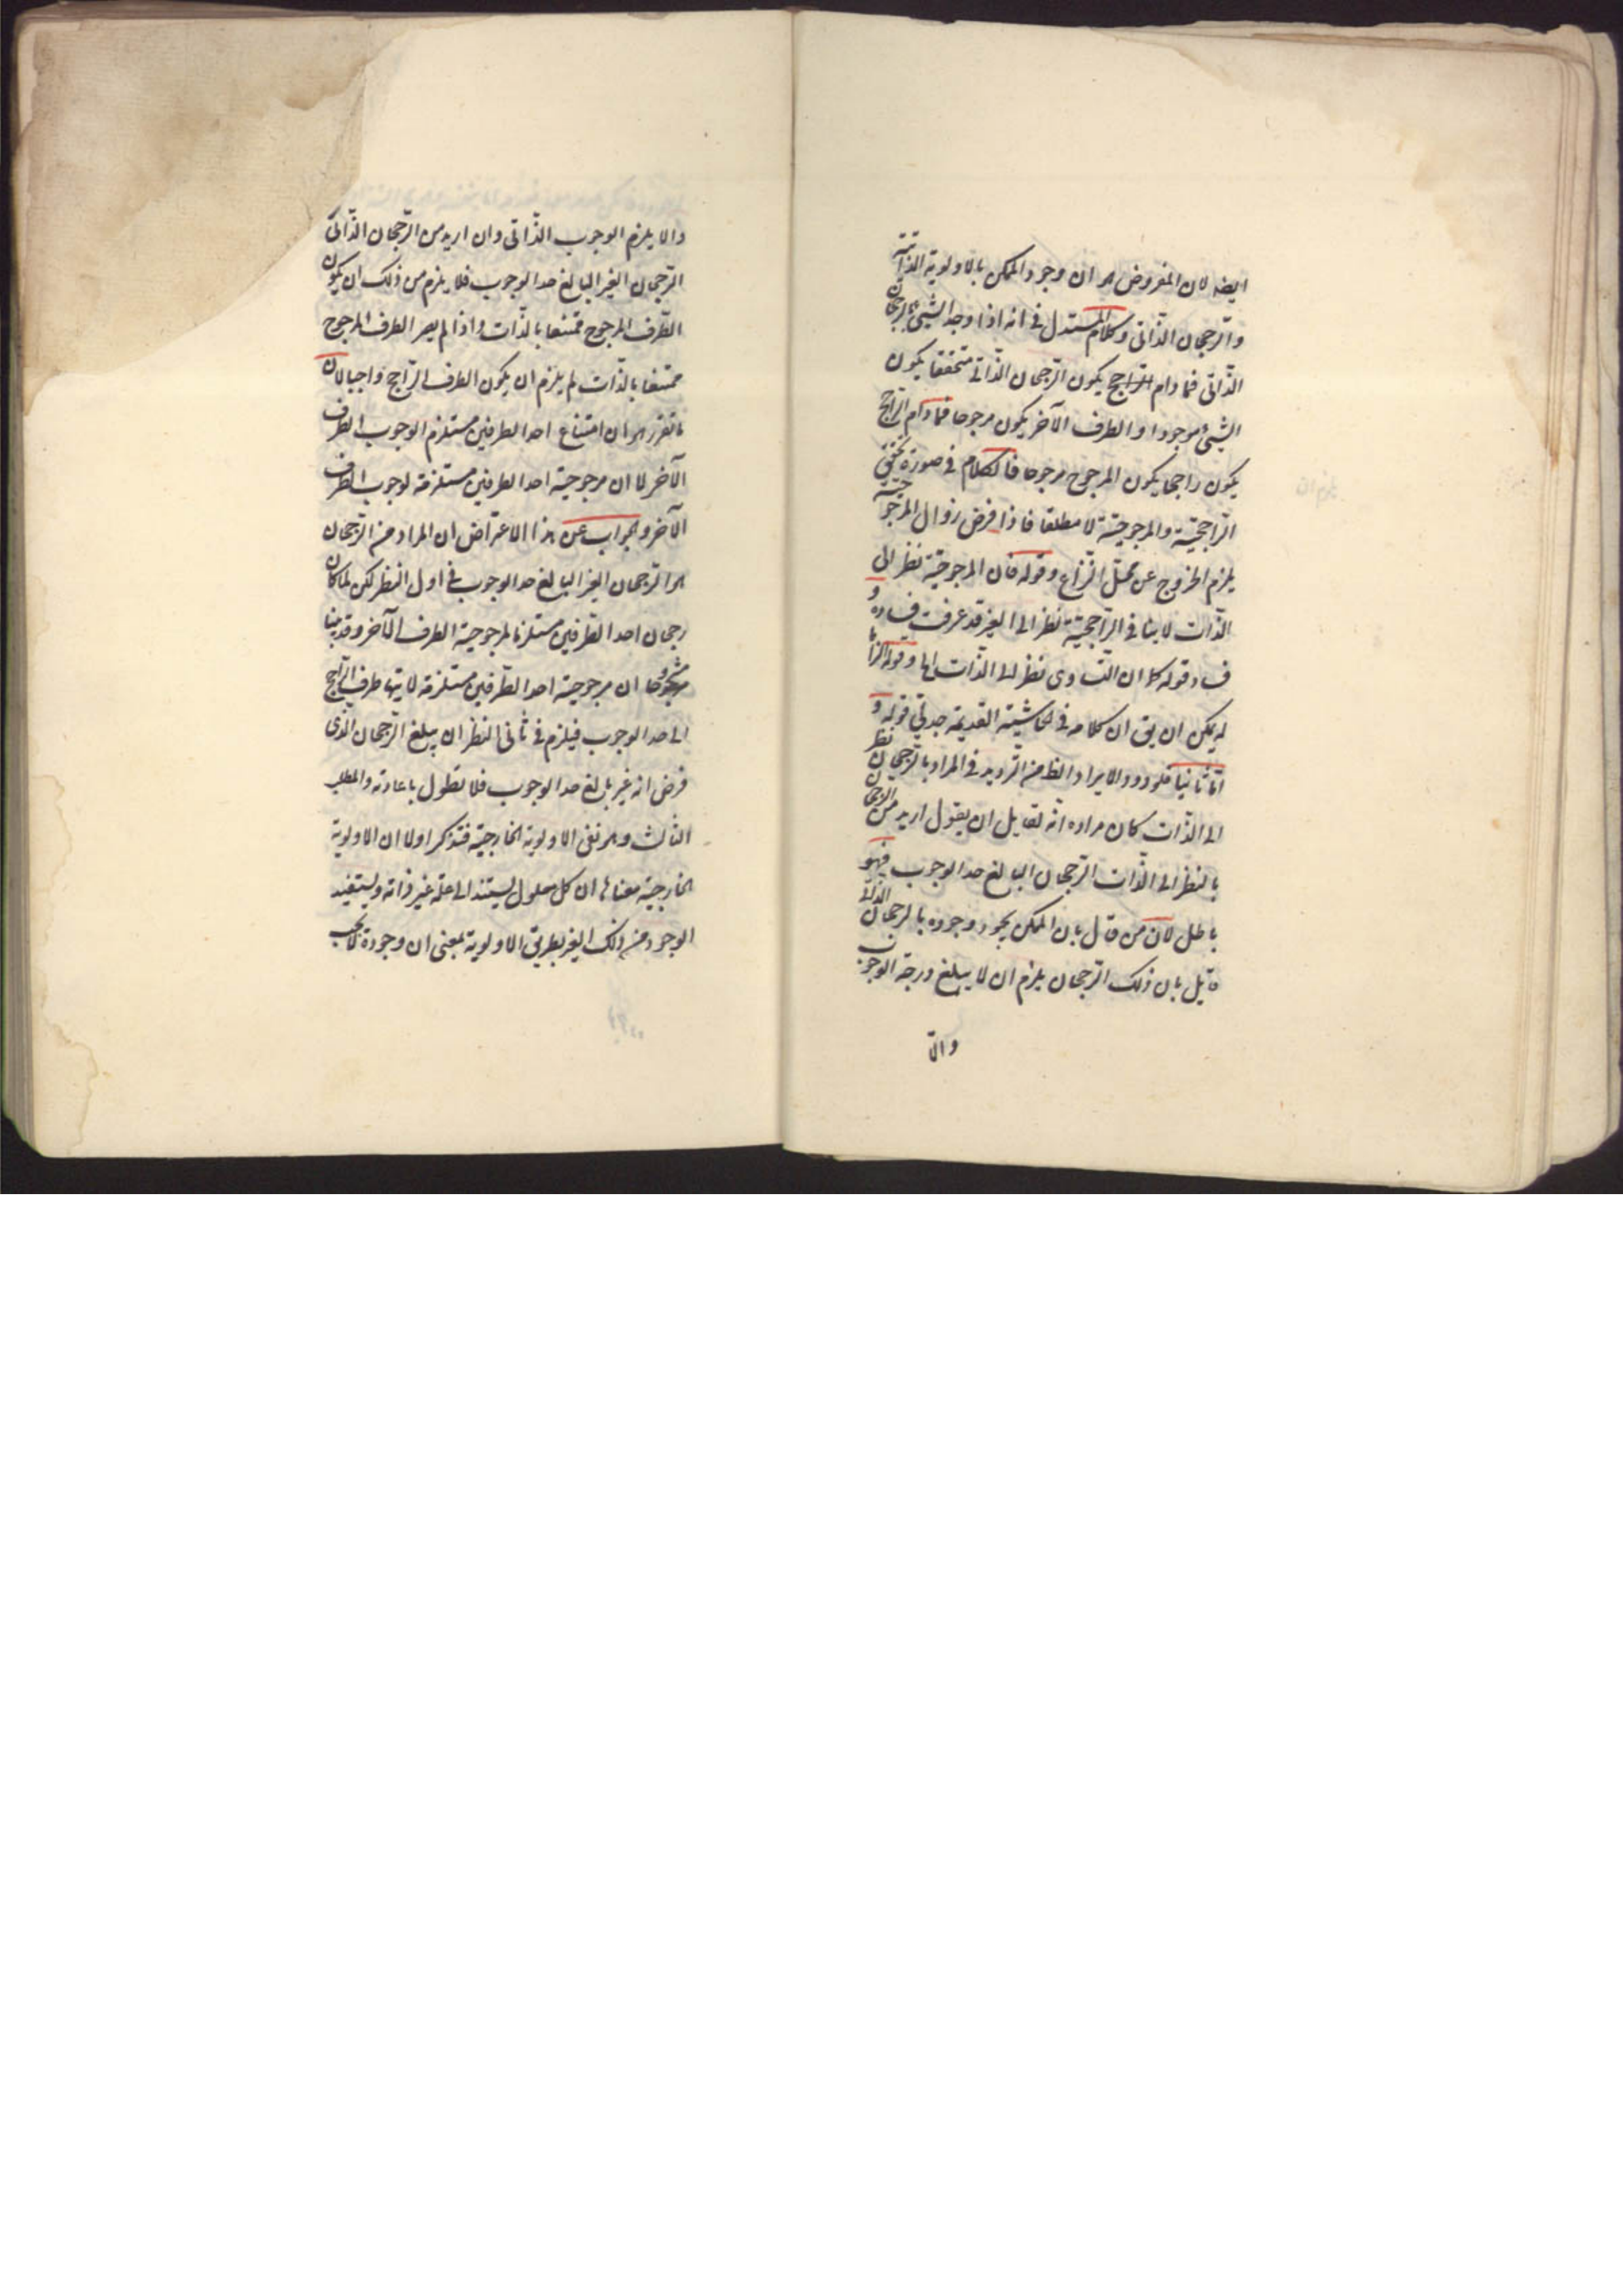 ايضه لان المفروض هو ان وجود الممكن بالاولوية الذاتية
والرجحان الذاتى وكلام المستدل فى انه اذا وجد الشيئ بالرجحان
الذاتى فما دام الراجح يكون الرجحان الذاتى متحققا يكون
الشيئ موجودا والطرف الآخر يكون مرجوحا فما دام الراجح
يكون راجحا يكون المرجوح مرجوحا فالكلام فى صورة تحقق
الراجحية والمرجوحية لا مطلقا فاذا فرض زوال المرجوحية
يلزم الخروج عن محل النزاع وقوله فان المرجوحية نظر الى
الذات لا ينافى الراجحية نظر الى الغير قد عرفت فساده و
فساد قوله كما ان التساوى نظر الى الذات وقوله الزاما
له يمكن ان يق ان كلامه فى الحاشية القديمة جدلى قوله و
اما ثانيا فلورود الايراد الظ من الترديد فى المراد بالرجحان نظر
الى الذات كان مراده انه لقايل ان يقول اريد من الرجحان
بالنظر الى الذات الرجحان البالغ حد الوجوب فهو
باطل لان من قال بان الممكن يجوز وجوده بالرجحان الذاتى
قايل بان ذلك الرجحان يلزم ان لا يبلغ درجة الوجوب
والا
والا يلزم الوجوب الذاتى وان اريد من الرجحان الذاتى
الرجحان الغير البالغ حد الوجوب فلا يلزم من ذلك ان يكون
الطرف المرجوح ممتنعا بالذات واذا لم يصر الطرف المرجوح
ممتنعا بالذات لم يلزم ان يكون الطرف الراجح واجبا لان
ما تقرر هو ان امتناع احد الطرفين مستلزم الوجوب الطرف
الآخر لا ان مرجوحية احد الطرفين مستلزمة لوجوب الطرف
الآخر والجواب عن هذا الاعتراض ان المراد من الرجحان
هو الرجحان الغير البالغ حد الوجوب فى اول النظر لكن لما كان
رجحان احد الطرفين مستلزما لمرجوحية الطرف الآخر وقد بينا
مشروحا ان مرجوحية احد الطرفين مستلزمة لانتهاء طرف الراجح
الى حد الوجوب فيلزم فى ثانى النظر ان يبلغ الرجحان الذى
فرض انه غير بالغ حد الوجوب فلا نطول باعادته والمطلب
الثالث وهو نفى الاولوية الخارجية فتذكر اولا ان الاولوية
الخارجية معناها ان كل معلول يستند الى علة غير ذاته ويستفيد
الوجود من ذلك الغير بطريق الاولوية بمعنى ان وجوده لا يجب